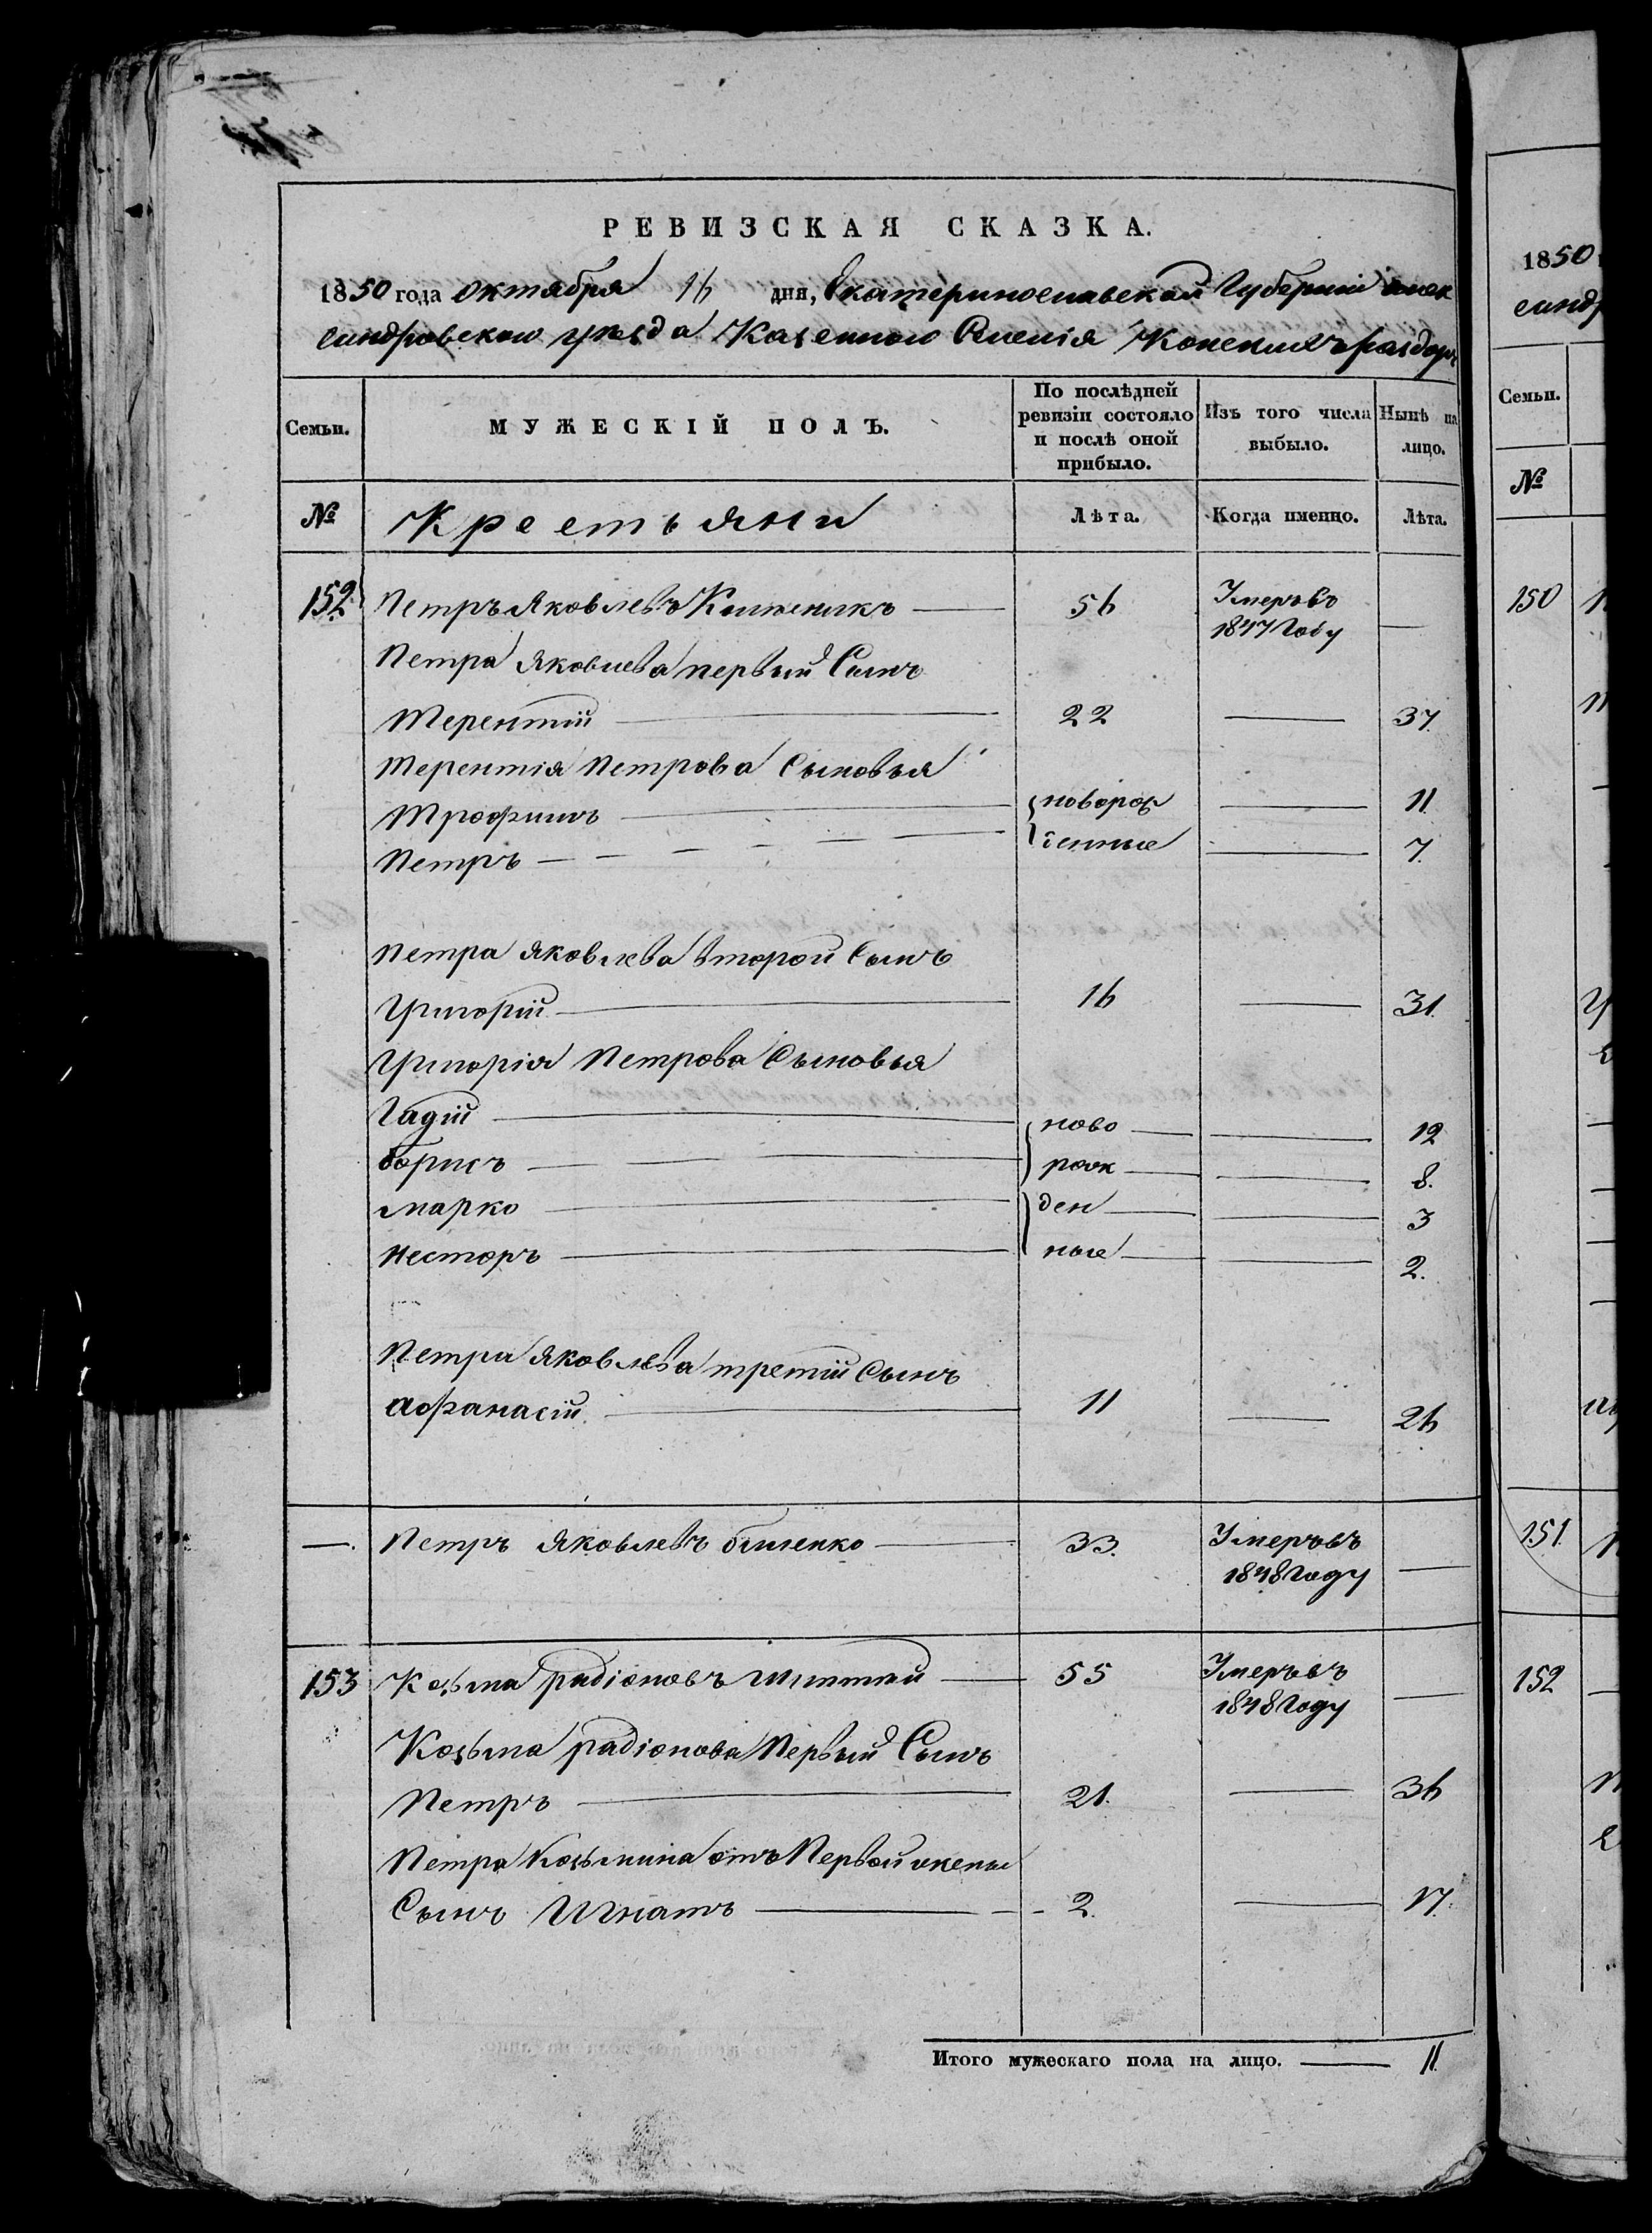 РЕВИЗСКАЯ СКАЗКА.
1850 года октября 16 дня, Екатеринославской Губернии алек
сандровского уезда Казенного Селенія Конскихъ раздоръ
Семьи.
МУЖЕСКІЙ ПОЛЪ.
По послѣдней ревизіи состояло и послѣ оной прибыло.
Изъ того числа выбыло.
Нынѣ на лицо.
№
Крестьяни
Лѣта.
Когда именно.
Лѣта.
152 Петръ Яковлевъ 56 Умеръ въ 1847 Году —
Петра Яковлева первый Сынъ
Терентій 22 — 37.
Терентія Петрова Сыновья
Трофимъ новорож — 11.
Петръ денные — 7.
Петра Яковлева второй Сынъ
Григорій 16 — 31.
Григорія Петрова Сыновья
Гадій ново — 12
борисъ рож — 8.
марко ден — 3
Несторъ ные — 2.
Петра Яковлева третій Сынъ
Афанасій. 11 — 26
—. Петръ Яковлевъ 33. Умеръ въ 1848 Году —
153 Козьма радіоновъ 55 Умеръ въ 1848 Году —
Козьма радіонова Первый Сынъ
Петръ 21. — 36
Петра Козьмина отъ Первой жены
Сынъ Игнатъ 2. — 17.
Итого мужескаго пола на лицо. — 11.
1850
санд
Семьи.
№
150
151.
152